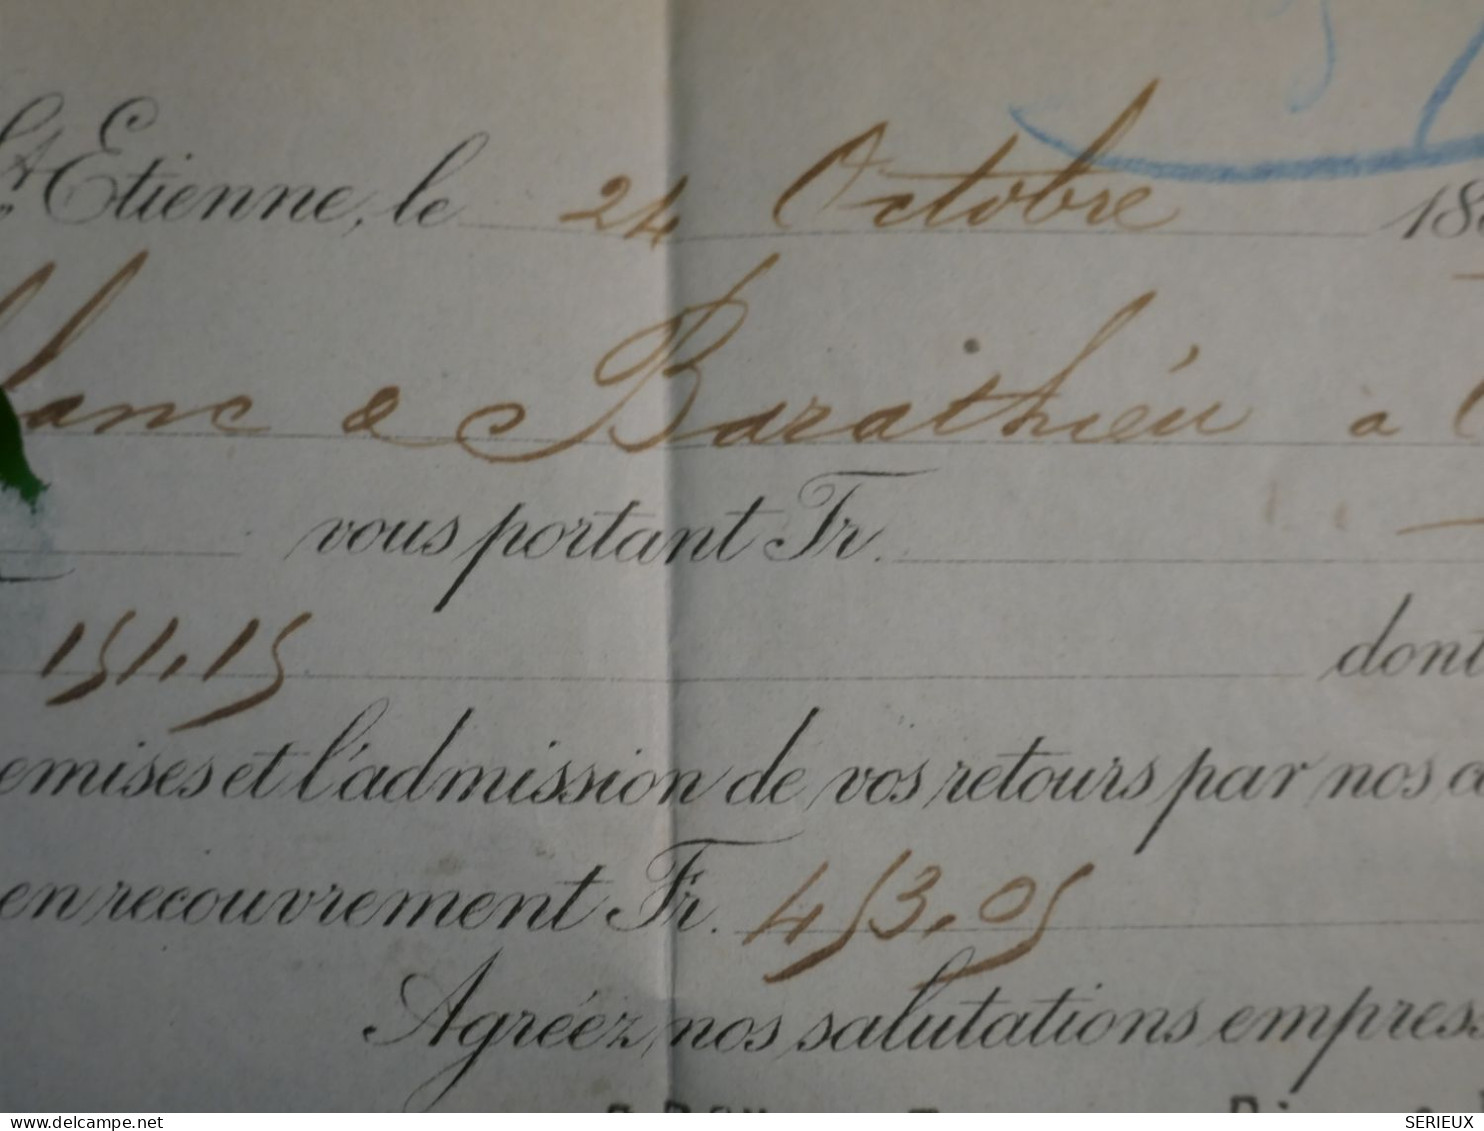 St Etienne, le 24 Octobre 188
lanc & Barathieu à
vous portant Fr.
151.15 dont
emises et l'admission de vos retours par nos
en recouvrement Fr. 453.05
Agréez, nos salutations empress
delcampe.net
SERIEUX